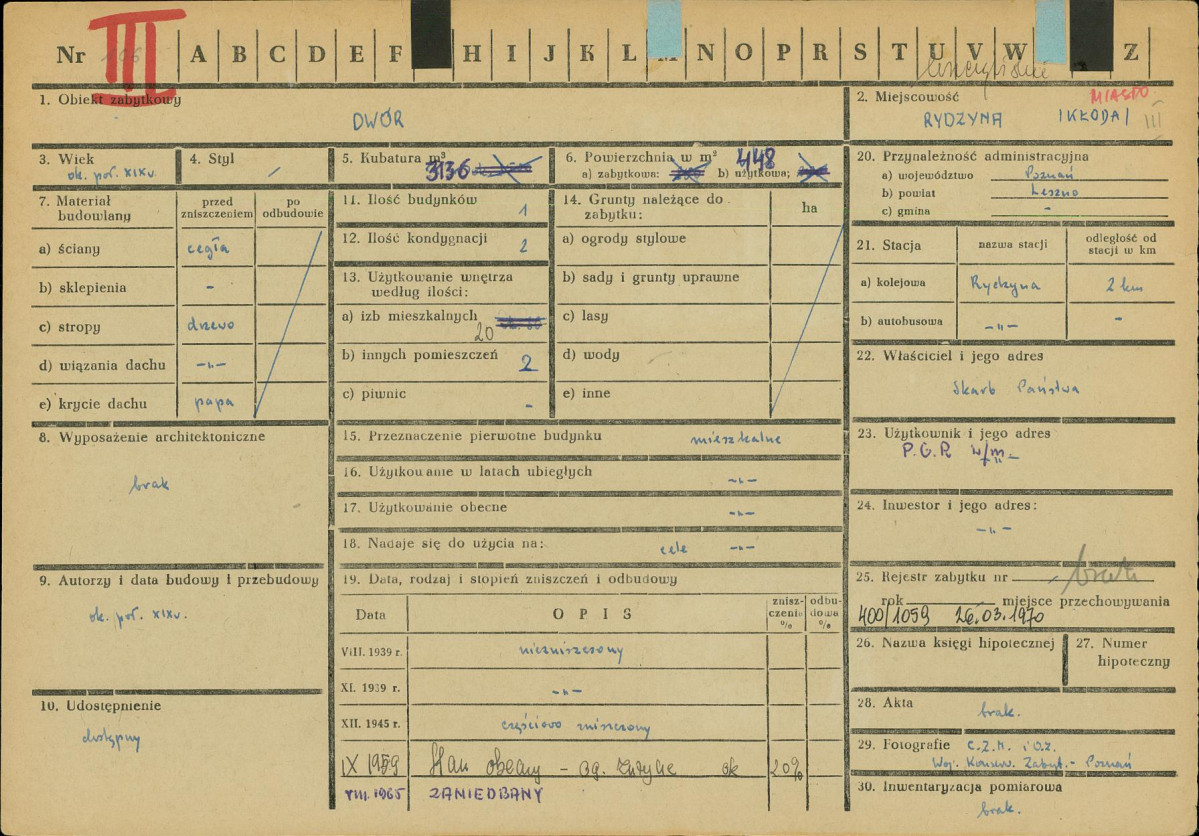 Nr III 106 A B C D E F H I J K L M N O P R S T U V W Z
1. Obiekt zabytkowy
DWÓR
2. Miejscowość MIASTO
RYDZYNA /KŁODA/ III
3. Wiek
ok. poł. XIX w.
4. Styl
5. Kubatura m³
3136
6. Powierzchnia w m² 448
a) zabytkowa: b) użytkowa;
20. Przynależność administracyjna
a) województwo Poznań
b) powiat Leszno
c) gmina -
7. Materiał budowlany
przed zniszczeniem
po odbudowie
a) ściany cegła
b) sklepienia -
c) stropy drzewo
d) wiązania dachu -„-
e) krycie dachu papa
11. Ilość budynków 1
12. Ilość kondygnacji 2
13. Użytkowanie wnętrza
według ilości:
a) izb mieszkalnych
20
b) innych pomieszczeń 2
c) piwnic -
14. Grunty należące do
zabytku: ha
a) ogrody stylowe
b) sady i grunty uprawne
c) lasy
d) wody
e) inne
21. Stacja
nazwa stacji
odległość od
stacji w km
a) kolejowa Rydzyna 2 km
b) autobusowa -„- -
22. Właściciel i jego adres
Skarb Państwa
8. Wyposażenie architektoniczne
brak
15. Przeznaczenie pierwotne budynku mieszkalne
16. Użytkowanie w latach ubiegłych -„-
17. Użytkowanie obecne -„-
18. Nadaje się do użycia na: cele -„-
23. Użytkownik i jego adres
P.G.R. w/m
24. Inwestor i jego adres:
-„-
9. Autorzy i data budowy i przebudowy
ok. poł. XIX w.
19. Data, rodzaj i stopień zniszczeń i odbudowy
Data
OPIS
znisz-
czenia
%
odbu-
dowa
%
VIII. 1939 r. niezniszczony
XI. 1939 r. -„-
XII. 1945 r. częściowo zniszczony
IX 1959 Stan obecny - og. zużycie ok 20%
VIII. 1965 ZANIEDBANY
25. Rejestr zabytku nr brak
rok miejsce przechowywania
400/1059 26.03.1970
26. Nazwa księgi hipotecznej
27. Numer
hipoteczny
10. Udostępnienie
dostępny
28. Akta
brak.
29. Fotografie C.Z.M. i O.Z.
Woj. Konserw. Zabyt. - Poznań
30. Inwentaryzacja pomiarowa
brak.